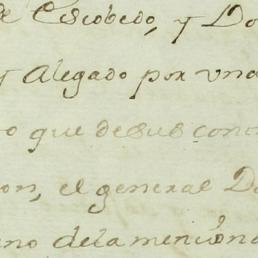 de Escobedo, y Do
y Alegado por una
o que desus cono
on, el general D
no dela mencⁱona